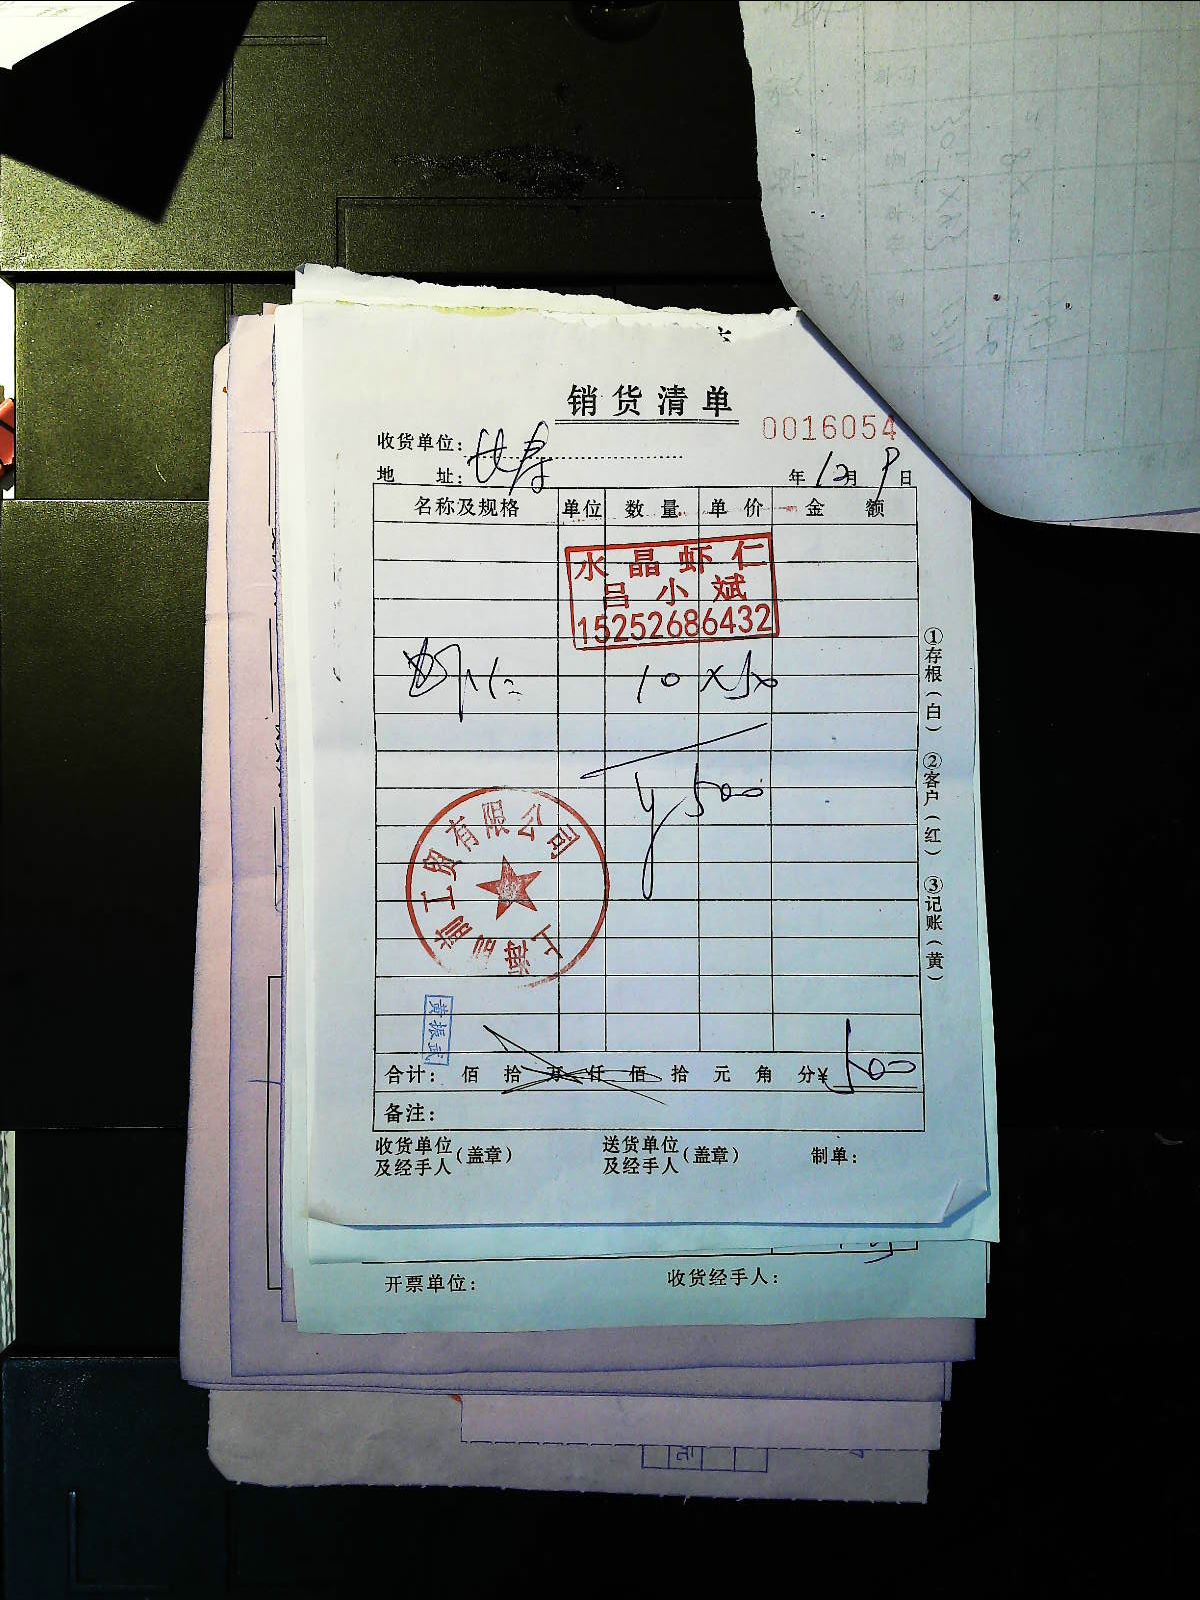 销货清单
0016054
收货单位：
地 址： 年 12月 9日
名称及规格 单位 数量 单价 金额
水晶虾仁
吕小斌
15252686432
虾仁 10 × 50
¥ 500
工贸有限公司
上海
黄振武
合计： 佰 拾 万 仟 佰 拾 元 角 分¥ 500
备注：
收货单位及经手人（盖章） 送货单位及经手人（盖章） 制单：
①存根（白） ②客户（红） ③记账（黄）
开票单位： 收货经手人：
元